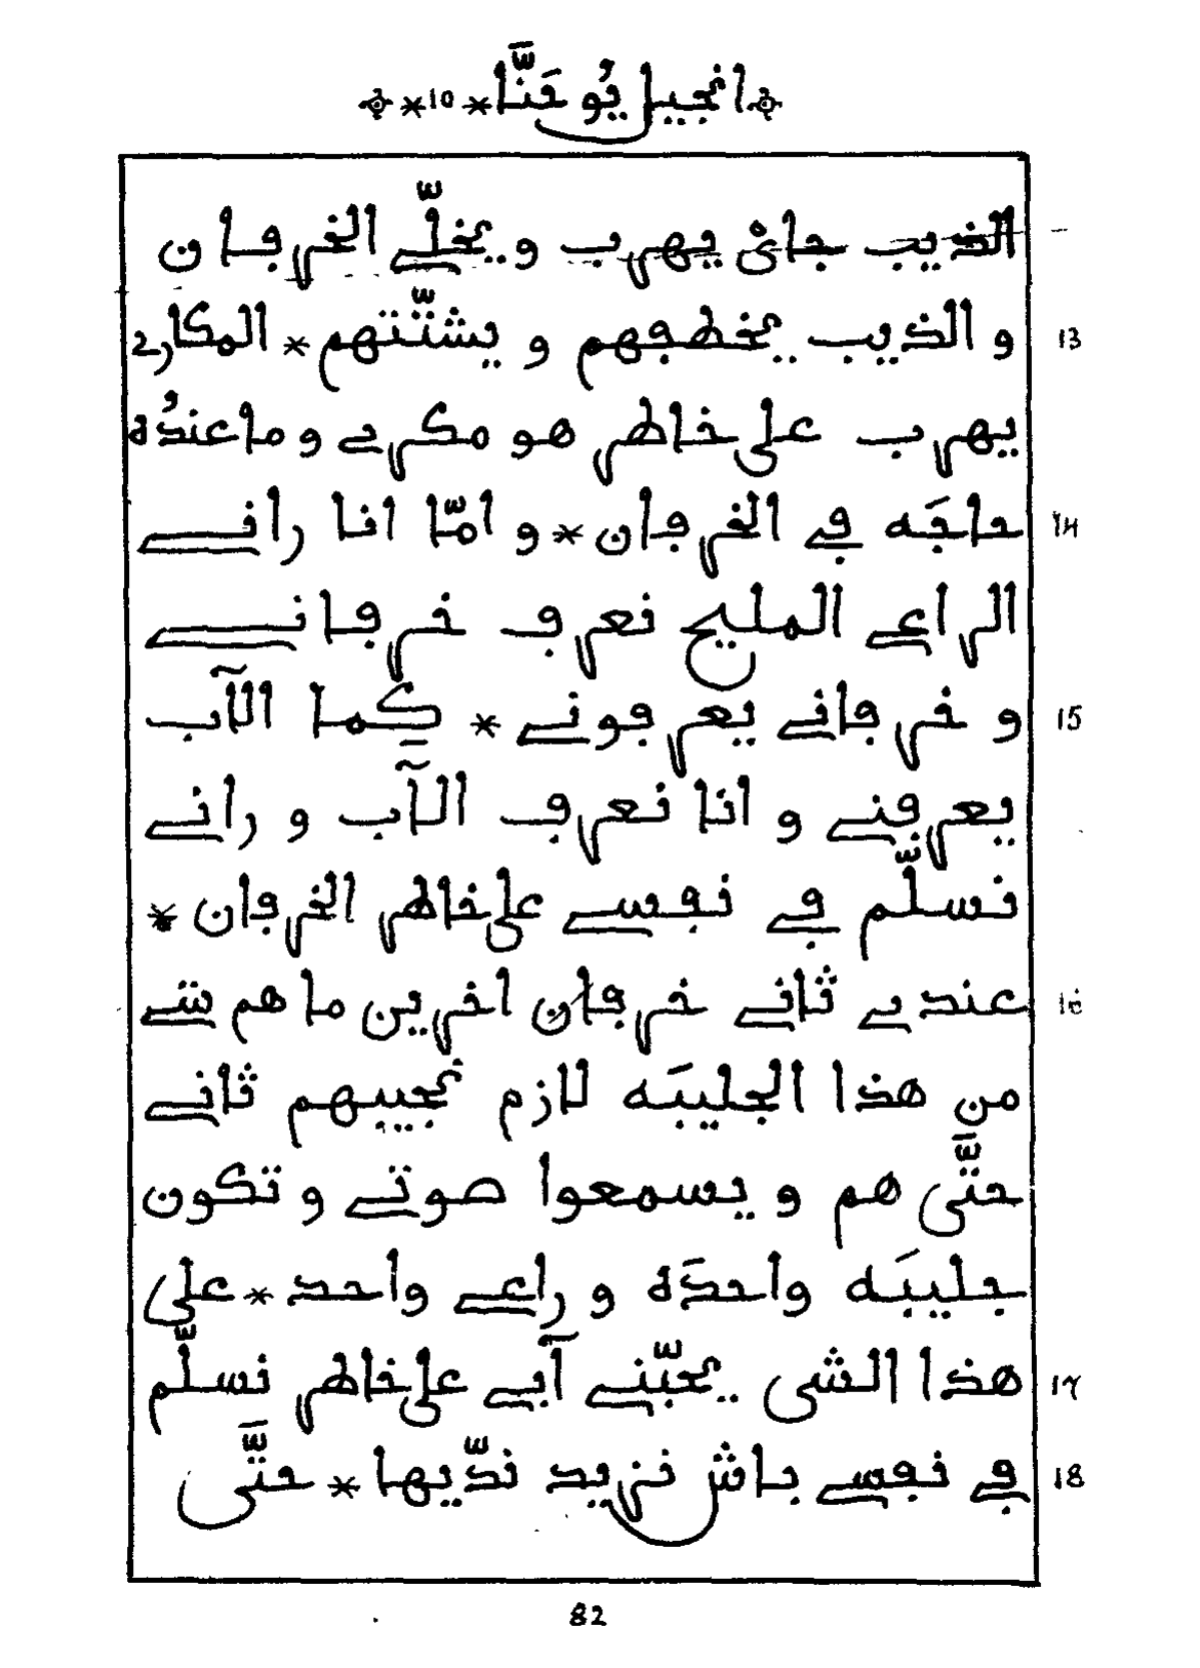 انجيل يُوحَنَّا * 10 *
الذيب جائ يهرب و يخلّي الخرفان
13 و الذيب يخطفهم و يشتّتهم * المكاري
يهرب على خاطر هو مكري و ما عندُه
14 حاجَه في الخرفان * و امّا انا راني
الراعي المليح نعرف خرفاني
15 و خرفاني يعرفوني * كَما الآب
يعرفني و انا نعرف الآب و راني
نسلّم في نفسي على خاطر الخرفان *
16 عندي ثاني خرفان اخرين ما هم شي
من هذا الجليبَه لازم نجيبهم ثاني
حتَّى هم و يسمعوا صوتي و تكون
جليبَه واحدَه و راعي واحد * على
17 هذا الشى يحبّني آبي على خاطر نسلّم
18 في نفسي باش نزيد ندّيها * حتَّى
82